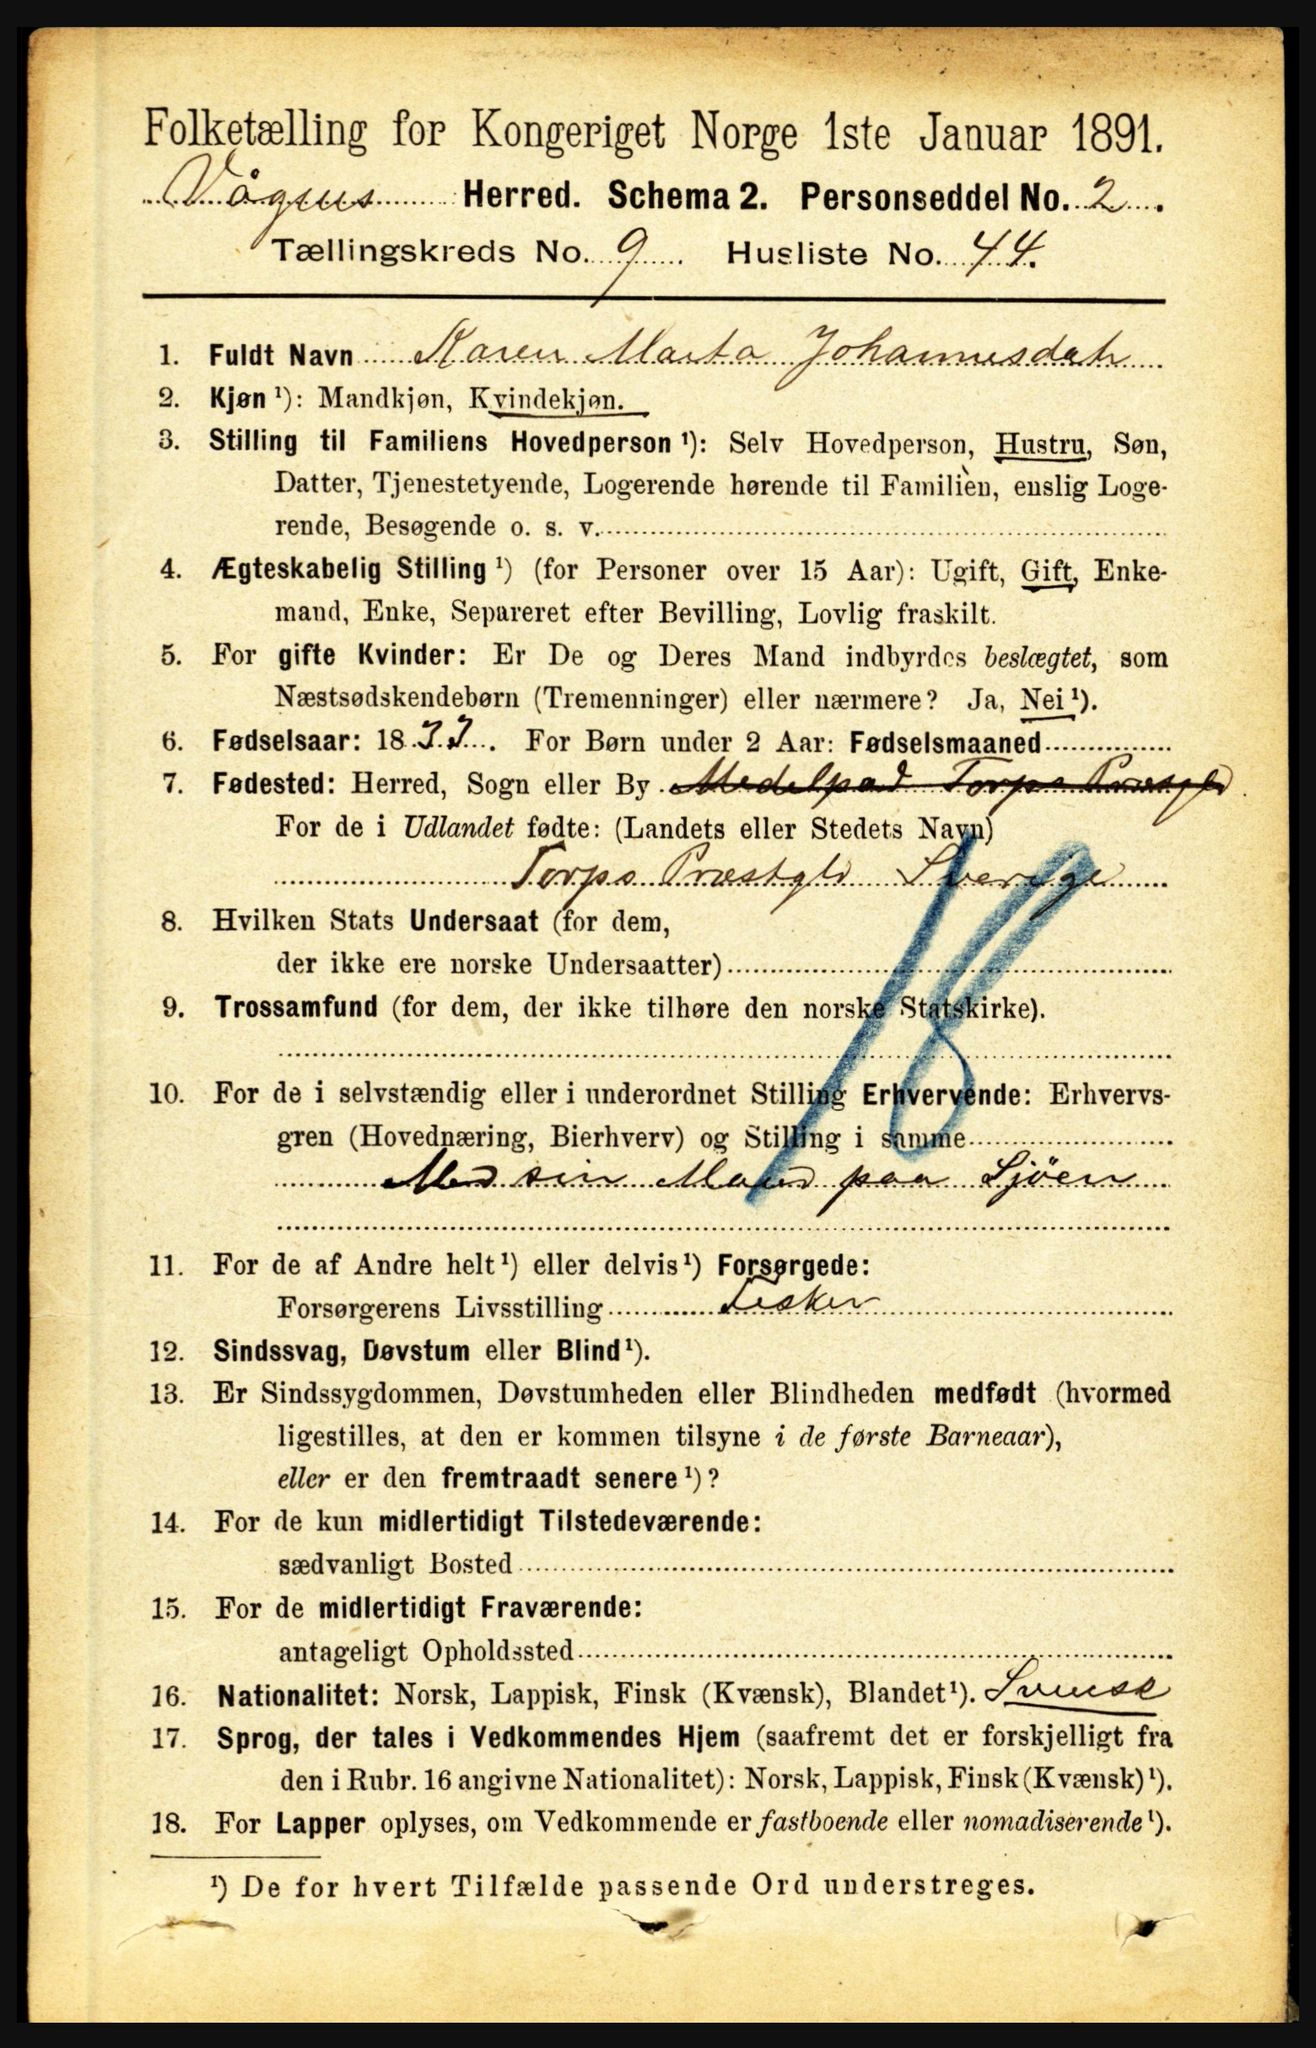 Folketælling for Kongeriget Norge 1ste Januar 1891.
Vågens Herred. Schema 2. Personseddel No. 2.
Tællingskreds No. 9 Husliste No. 44.
1. Fuldt Navn Karen Marta Johannesdatr
2. Kjøn ¹): Mandkjøn, Kvindekjøn.
3. Stilling til Familiens Hovedperson ¹): Selv Hovedperson, Hustru, Søn,
Datter, Tjenestetyende, Logerende hørende til Familien, enslig Loge-
rende, Besøgende o. s. v.
4. Ægteskabelig Stilling ¹) (for Personer over 15 Aar): Ugift, Gift, Enke-
mand, Enke, Separeret efter Bevilling, Lovlig fraskilt.
5. For gifte Kvinder: Er De og Deres Mand indbyrdes beslægtet, som
Næstsødskendebørn (Tremenninger) eller nærmere? Ja, Nei ¹).
6. Fødselsaar: 18 . For Børn under 2 Aar: Fødselsmaaned
7. Fødested: Herred, Sogn eller By Medelpad Torps Præstgld
For de i Udlandet fødte: (Landets eller Stedets Navn)
Torps Præstgld Sverige
8. Hvilken Stats Undersaat (for dem,
der ikke ere norske Undersaatter)
9. Trossamfund (for dem, der ikke tilhøre den norske Statskirke).
18
10. For de i selvstændig eller i underordnet Stilling Erhvervende: Erhvervs-
gren (Hovednæring, Bierhverv) og Stilling i samme
Med sin Mand paa Sjöen
11. For de af Andre helt ¹) eller delvis ¹) Forsørgede:
Forsørgerens Livsstilling Fisker
12. Sindssvag, Døvstum eller Blind ¹).
13. Er Sindssygdommen, Døvstumheden eller Blindheden medfødt (hvormed
ligestilles, at den er kommen tilsyne i de første Barneaar),
eller er den fremtraadt senere ¹)?
14. For de kun midlertidigt Tilstedeværende:
sædvanligt Bosted
15. For de midlertidigt Fraværende:
antageligt Opholdssted
16. Nationalitet: Norsk, Lappisk, Finsk (Kvænsk), Blandet ¹). Svensk
17. Sprog, der tales i Vedkommendes Hjem (saafremt det er forskjelligt fra
den i Rubr. 16 angivne Nationalitet): Norsk, Lappisk, Finsk (Kvænsk) ¹).
18. For Lapper oplyses, om Vedkommende er fastboende eller nomadiserende ¹).
¹) De for hvert Tilfælde passende Ord understreges.